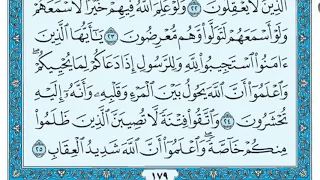 الَّذِينَ لَا يَعْقِلُونَ ۝٢٢ وَلَوْ عَلِمَ اللَّهُ فِيهِمْ خَيْرًا لَّأَسْمَعَهُمْ
وَلَوْ أَسْمَعَهُمْ لَتَوَلَّوا وَّهُم مُّعْرِضُونَ ۝٢٣ يَٰٓأَيُّهَا الَّذِينَ
ءَامَنُوا اسْتَجِيبُوا لِلَّهِ وَلِلرَّسُولِ إِذَا دَعَاكُمْ لِمَا يُحْيِيكُمْ ۖ
وَاعْلَمُوا أَنَّ اللَّهَ يَحُولُ بَيْنَ الْمَرْءِ وَقَلْبِهِ وَأَنَّهُ إِلَيْهِ
تُحْشَرُونَ ۝٢٤ وَاتَّقُوا فِتْنَةً لَّا تُصِيبَنَّ الَّذِينَ ظَلَمُوا
مِنكُمْ خَاصَّةً ۖ وَاعْلَمُوا أَنَّ اللَّهَ شَدِيدُ الْعِقَابِ ۝٢٥
١٧٩